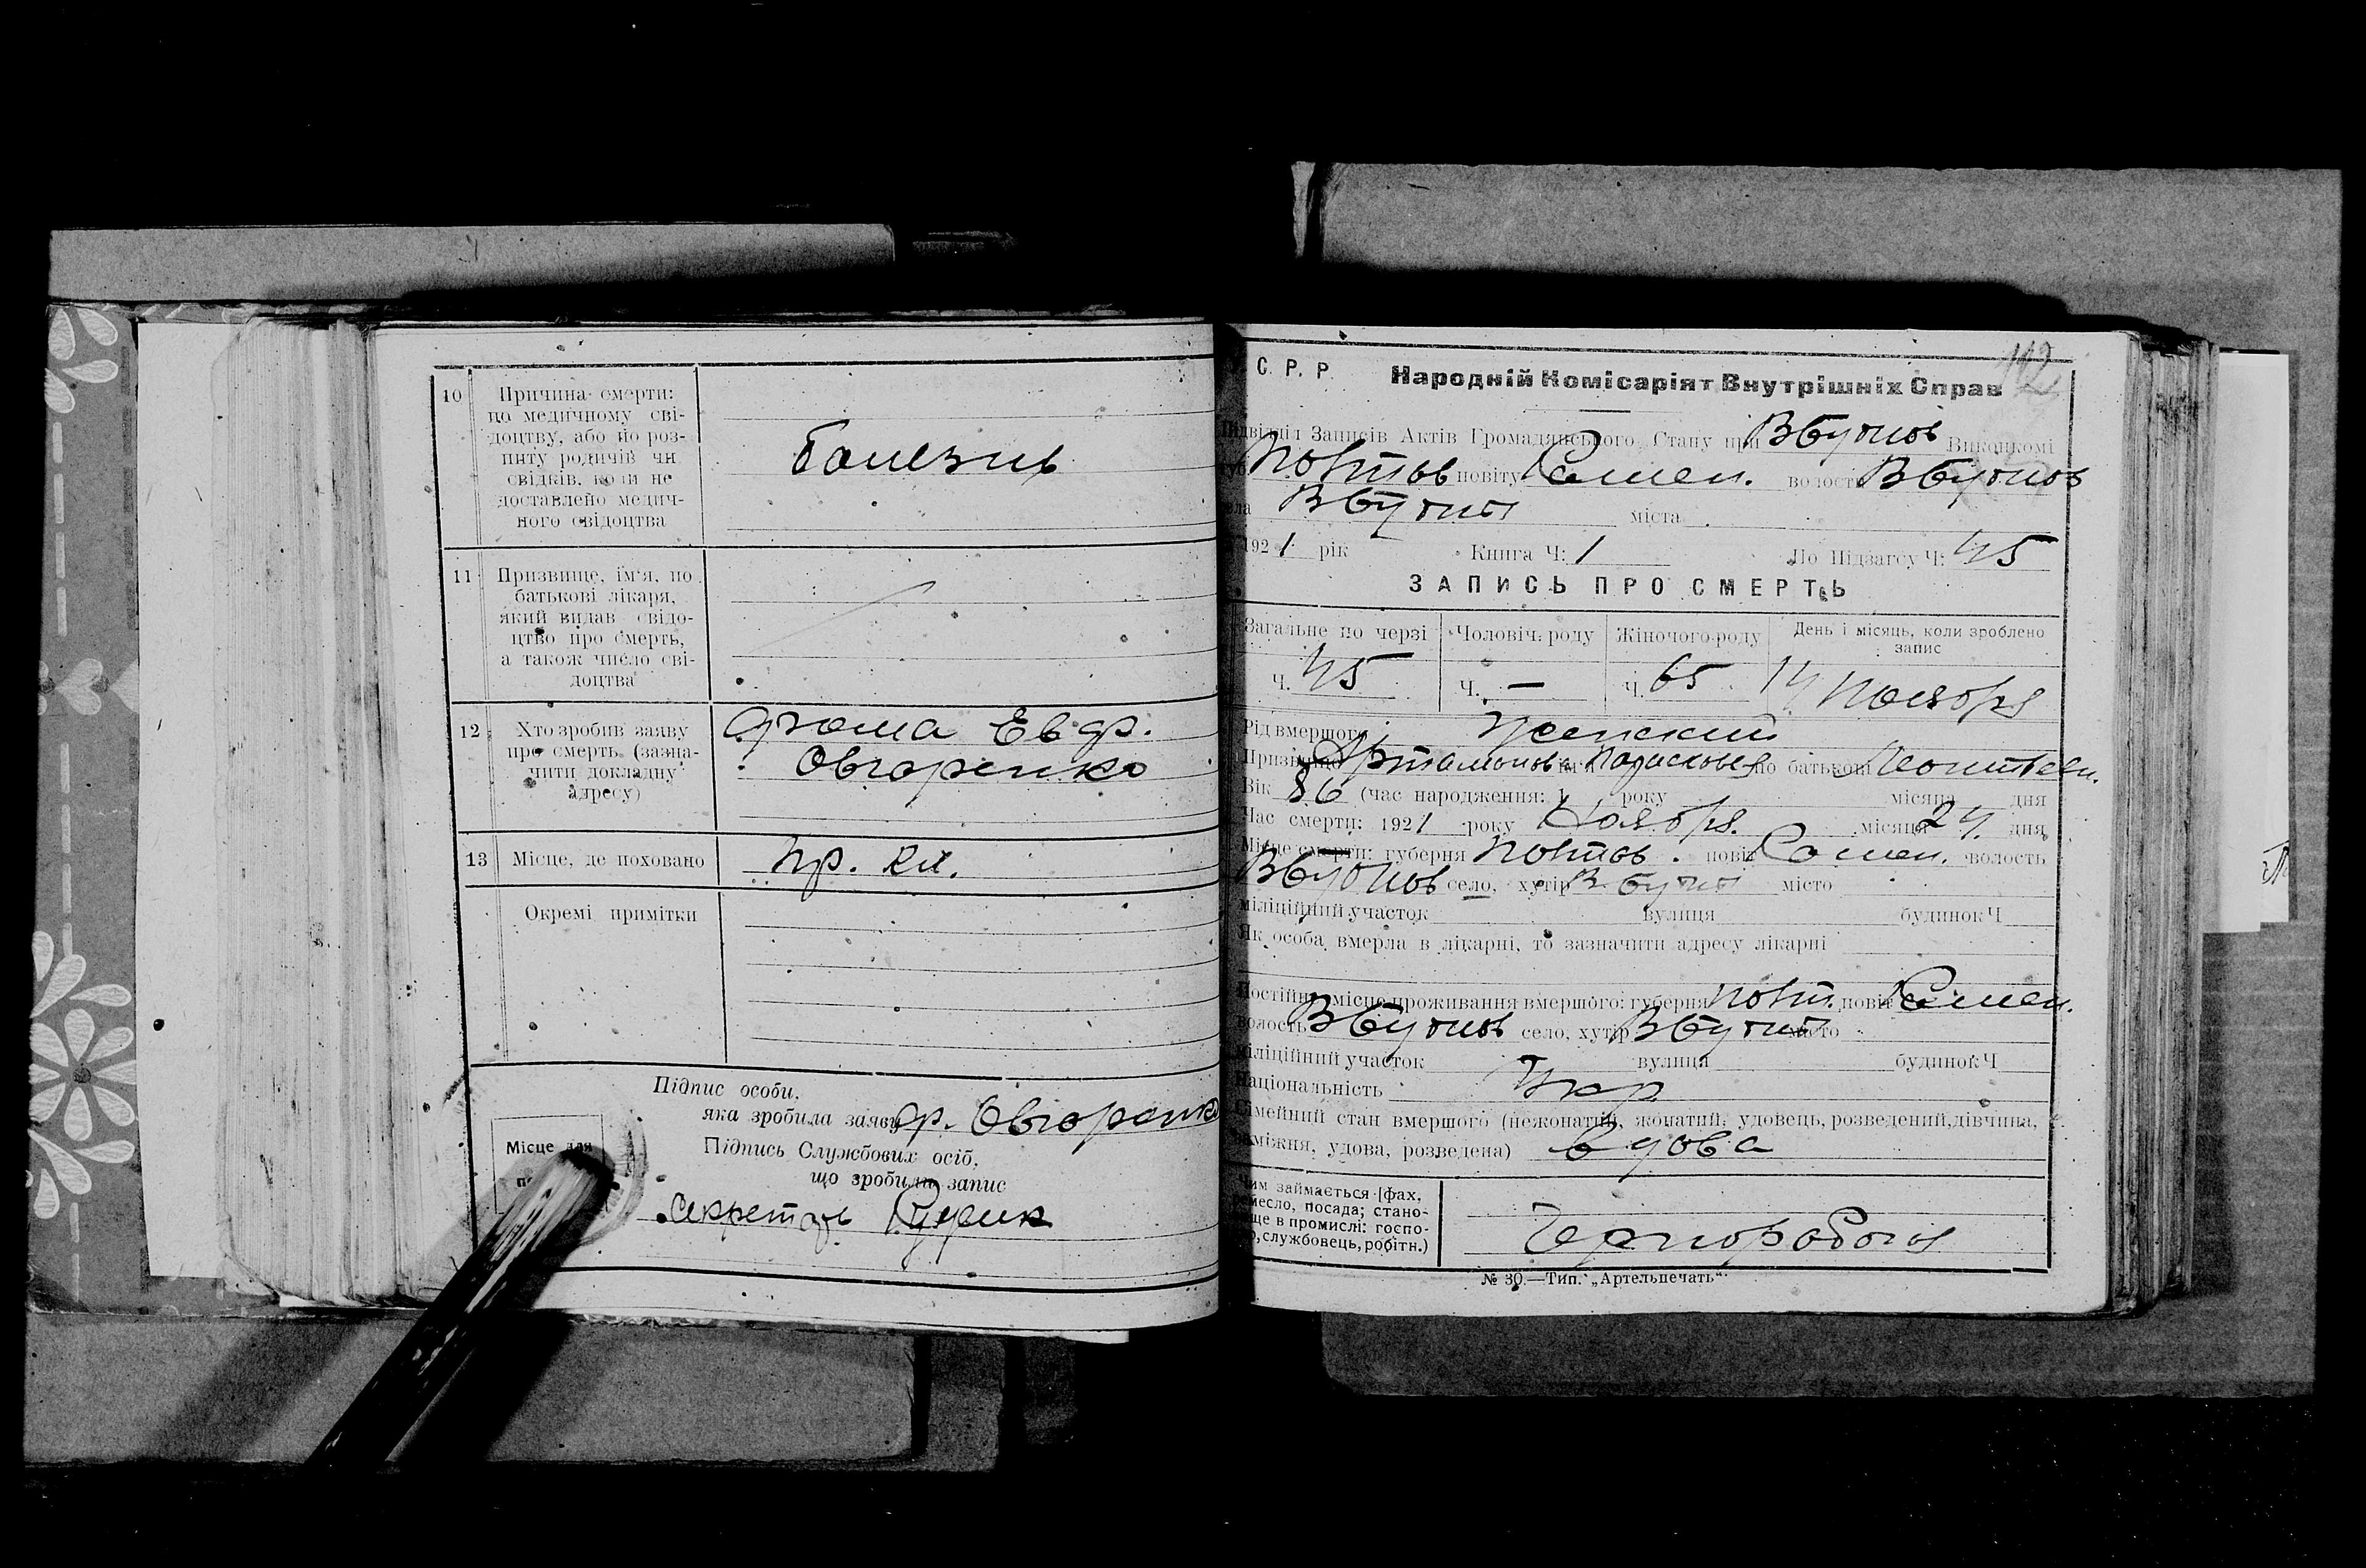 10 Причина смерти:
по медичному сві-
доцтву, або по роз-
питу родичів чи
свідків, коли не
доставлено медич-
ного свідоцтва
болезнь
11 Призвище, ім'я, по
батькові лікаря,
який видав свідо-
цтво про смерть,
а також число сві-
доцтва
12 Хто зробив заяву
про смерть (зазна-
чити докладну
адресу)
Овчаренко
13 Місце, де поховано пр. кл.
Окремі примітки
Підпис особи,
яка зробила заяву Овчаренко
Місце для
Підпись Службових осіб,
що зробили запис
Секретарь
112
С. Р. Р. Народній Комісаріят Внутрішніх Справ
Підвідділ Записів Актів Громадянського Стану при Виконкомі
губ. Полтов повіту волость
села міста
1921 рік Книга Ч: 1 По Підзагсу Ч:
ЗАПИСЬ ПРО СМЕРТЬ
Загальне по черзі Чоловіч. роду Жіночого роду День і місяць, коли зроблено
запис
Ч. Ч. — Ч. 65 Ноября
Рід вмершого женский
Призвище Артамонова ім'я Парасковья по батькові
Вік 86 (час народження: 1 року місяця дня
Час смерти: 1921 року Ноября місяця дня
Місце смерти: губерня Полтов. повіт волость
село, хутір місто
міліційний участок вулиця будинок Ч
Як особа вмерла в лікарні, то зазначити адресу лікарні
Постійне місце проживання вмершого: губерня Полт. повіт
волость село, хутір місто
міліційний участок вулиця будинок Ч
Національність Укр
Сімейний стан вмершого (нежонатий, жонатий, удовець, розведений, дівчина,
заміжня, удова, розведена) вдова
Чим займається [фах,
ремесло, посада; стано-
вище в промислі: госпо-
р, службовець, робітн.)
Чернорабочая
№ 30.—Тип. „Артельпечать“